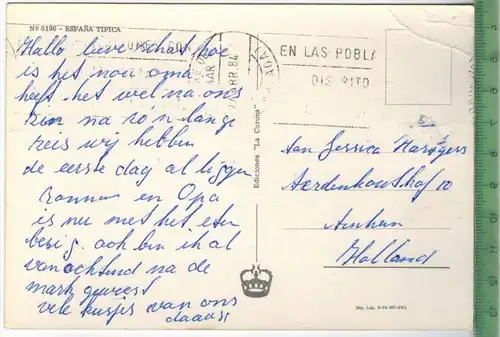 Nº 5190 - ESPAÑA TIPICA
Hallo lieve schat hoe
is het nou oma
heeft het wel na ons
zin na zo'n lange
reis wij hebben
de eerste dag al liggen
zonnen en Opa
is nu met het eten
bezig. ook bin ik al
vanochtend na de
mark geweest
vele kusjes van ons
daaag
EN LAS POBLA
DIS RITO
ABR 84
Ediciones "La Corona"
Aan Jessica
Aerdenhoutshof 10
Arnhem
Holland
Dep. Leg.